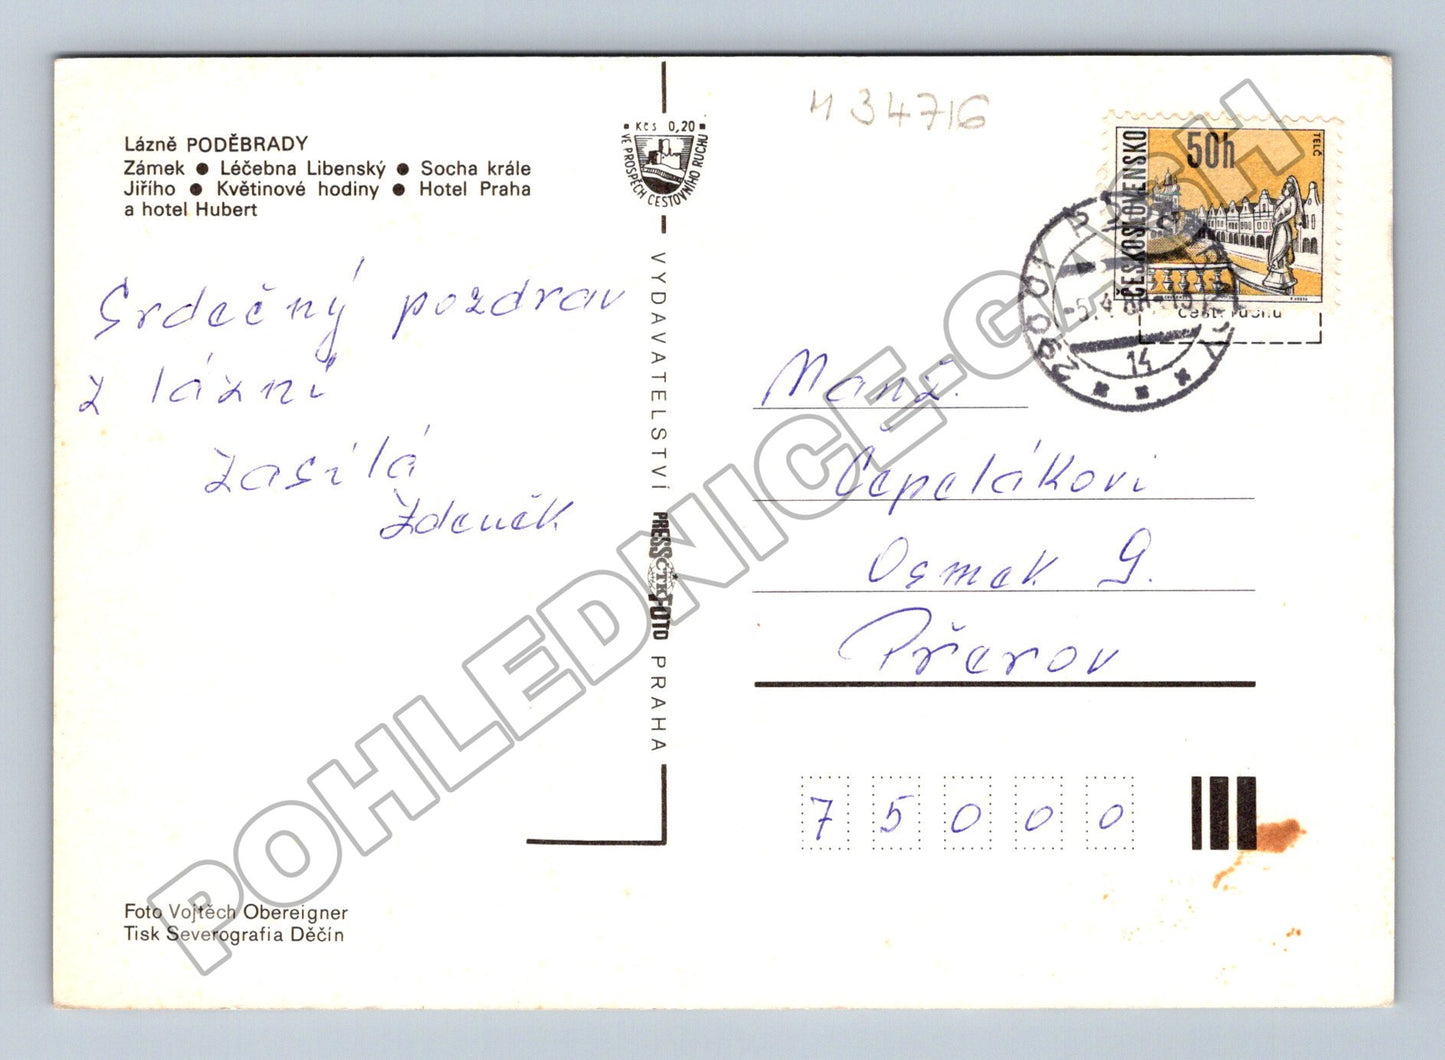 Lázně PODĚBRADY
Zámek ● Léčebna Libenský ● Socha krále
Jiřího ● Květinové hodiny ● Hotel Praha
a hotel Hubert
Srdečný pozdrav
z lázní
zasílá
Zdeněk
Foto Vojtěch Obereigner
Tisk Severografia Děčín
Kčs 0,20
VE PROSPĚCH CESTOVNÍHO RUCHU
VYDAVATELSTVÍ PRESSFOTO PRAHA
ČTK
34716
ČESKOSLOVENSKO
50h
TELČ
290 01
14
cest. ruchu
Manž.
Čepelákovi
Osmek 9.
Přerov
7 5 0 0 0
POHLEDNICE-CASH